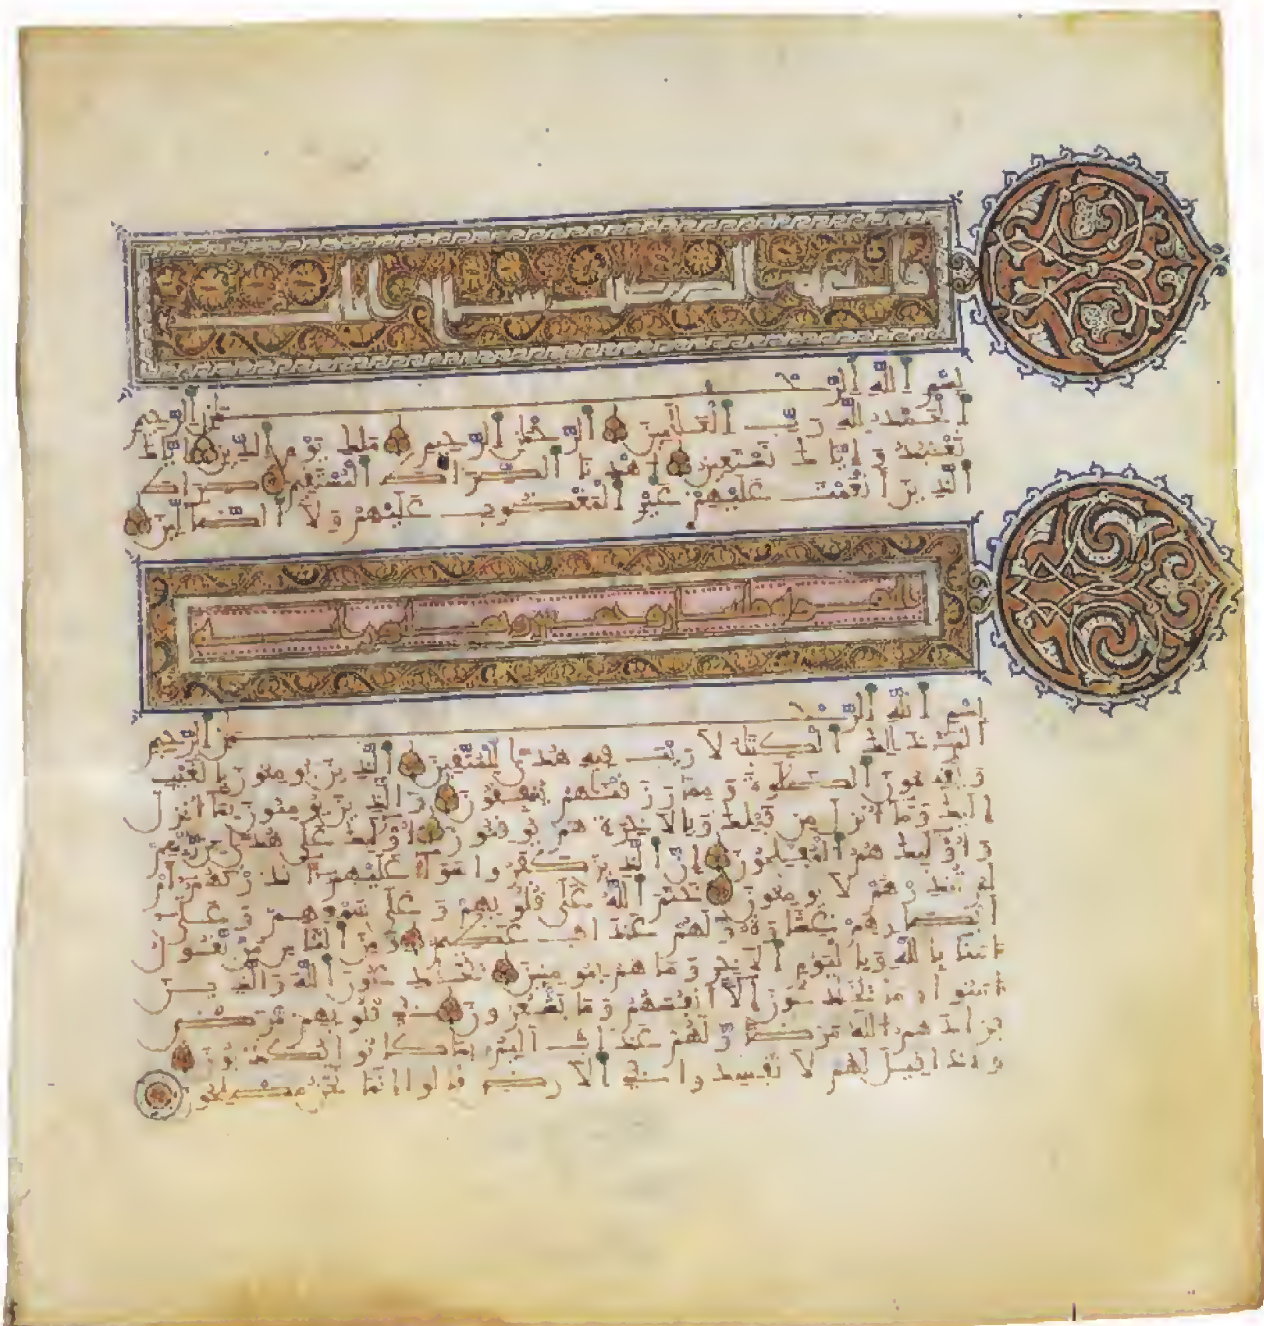 بسم الله الرحمن الرحيم
الحمد لله رب العلمين الرحمن الرحيم ملك يوم الدين اياك
نعبد واياك نستعين اهدنا الصراط المستقيم صراط
الذين انعمت عليهم غير المغضوب عليهم ولا الضالين
بسم الله الرحمن الرحيم
الم ذلك الكتب لا ريب فيه هدى للمتقين الذين يومنون بالغيب
ويقيمون الصلوة ومما رزقنهم ينفقون والذين يومنون بما انزل
اليك وما انزل من قبلك وبالاخرة هم يوقنون اولئك على هدى من ربهم
واولئك هم المفلحون ان الذين كفروا سواء عليهم ءانذرتهم ام
لم تنذرهم لا يومنون ختم الله على قلوبهم وعلى سمعهم وعلى
ابصرهم غشوة ولهم عذاب عظيم ومن الناس من يقول
ءامنا بالله وباليوم الاخر وما هم بمومنين يخدعون الله والذين
ءامنوا وما يخدعون الا انفسهم وما يشعرون في قلوبهم مرض
فزادهم الله مرضا ولهم عذاب اليم بما كانوا يكذبون
واذا قيل لهم لا تفسدوا في الارض قالوا انما نحن مصلحون